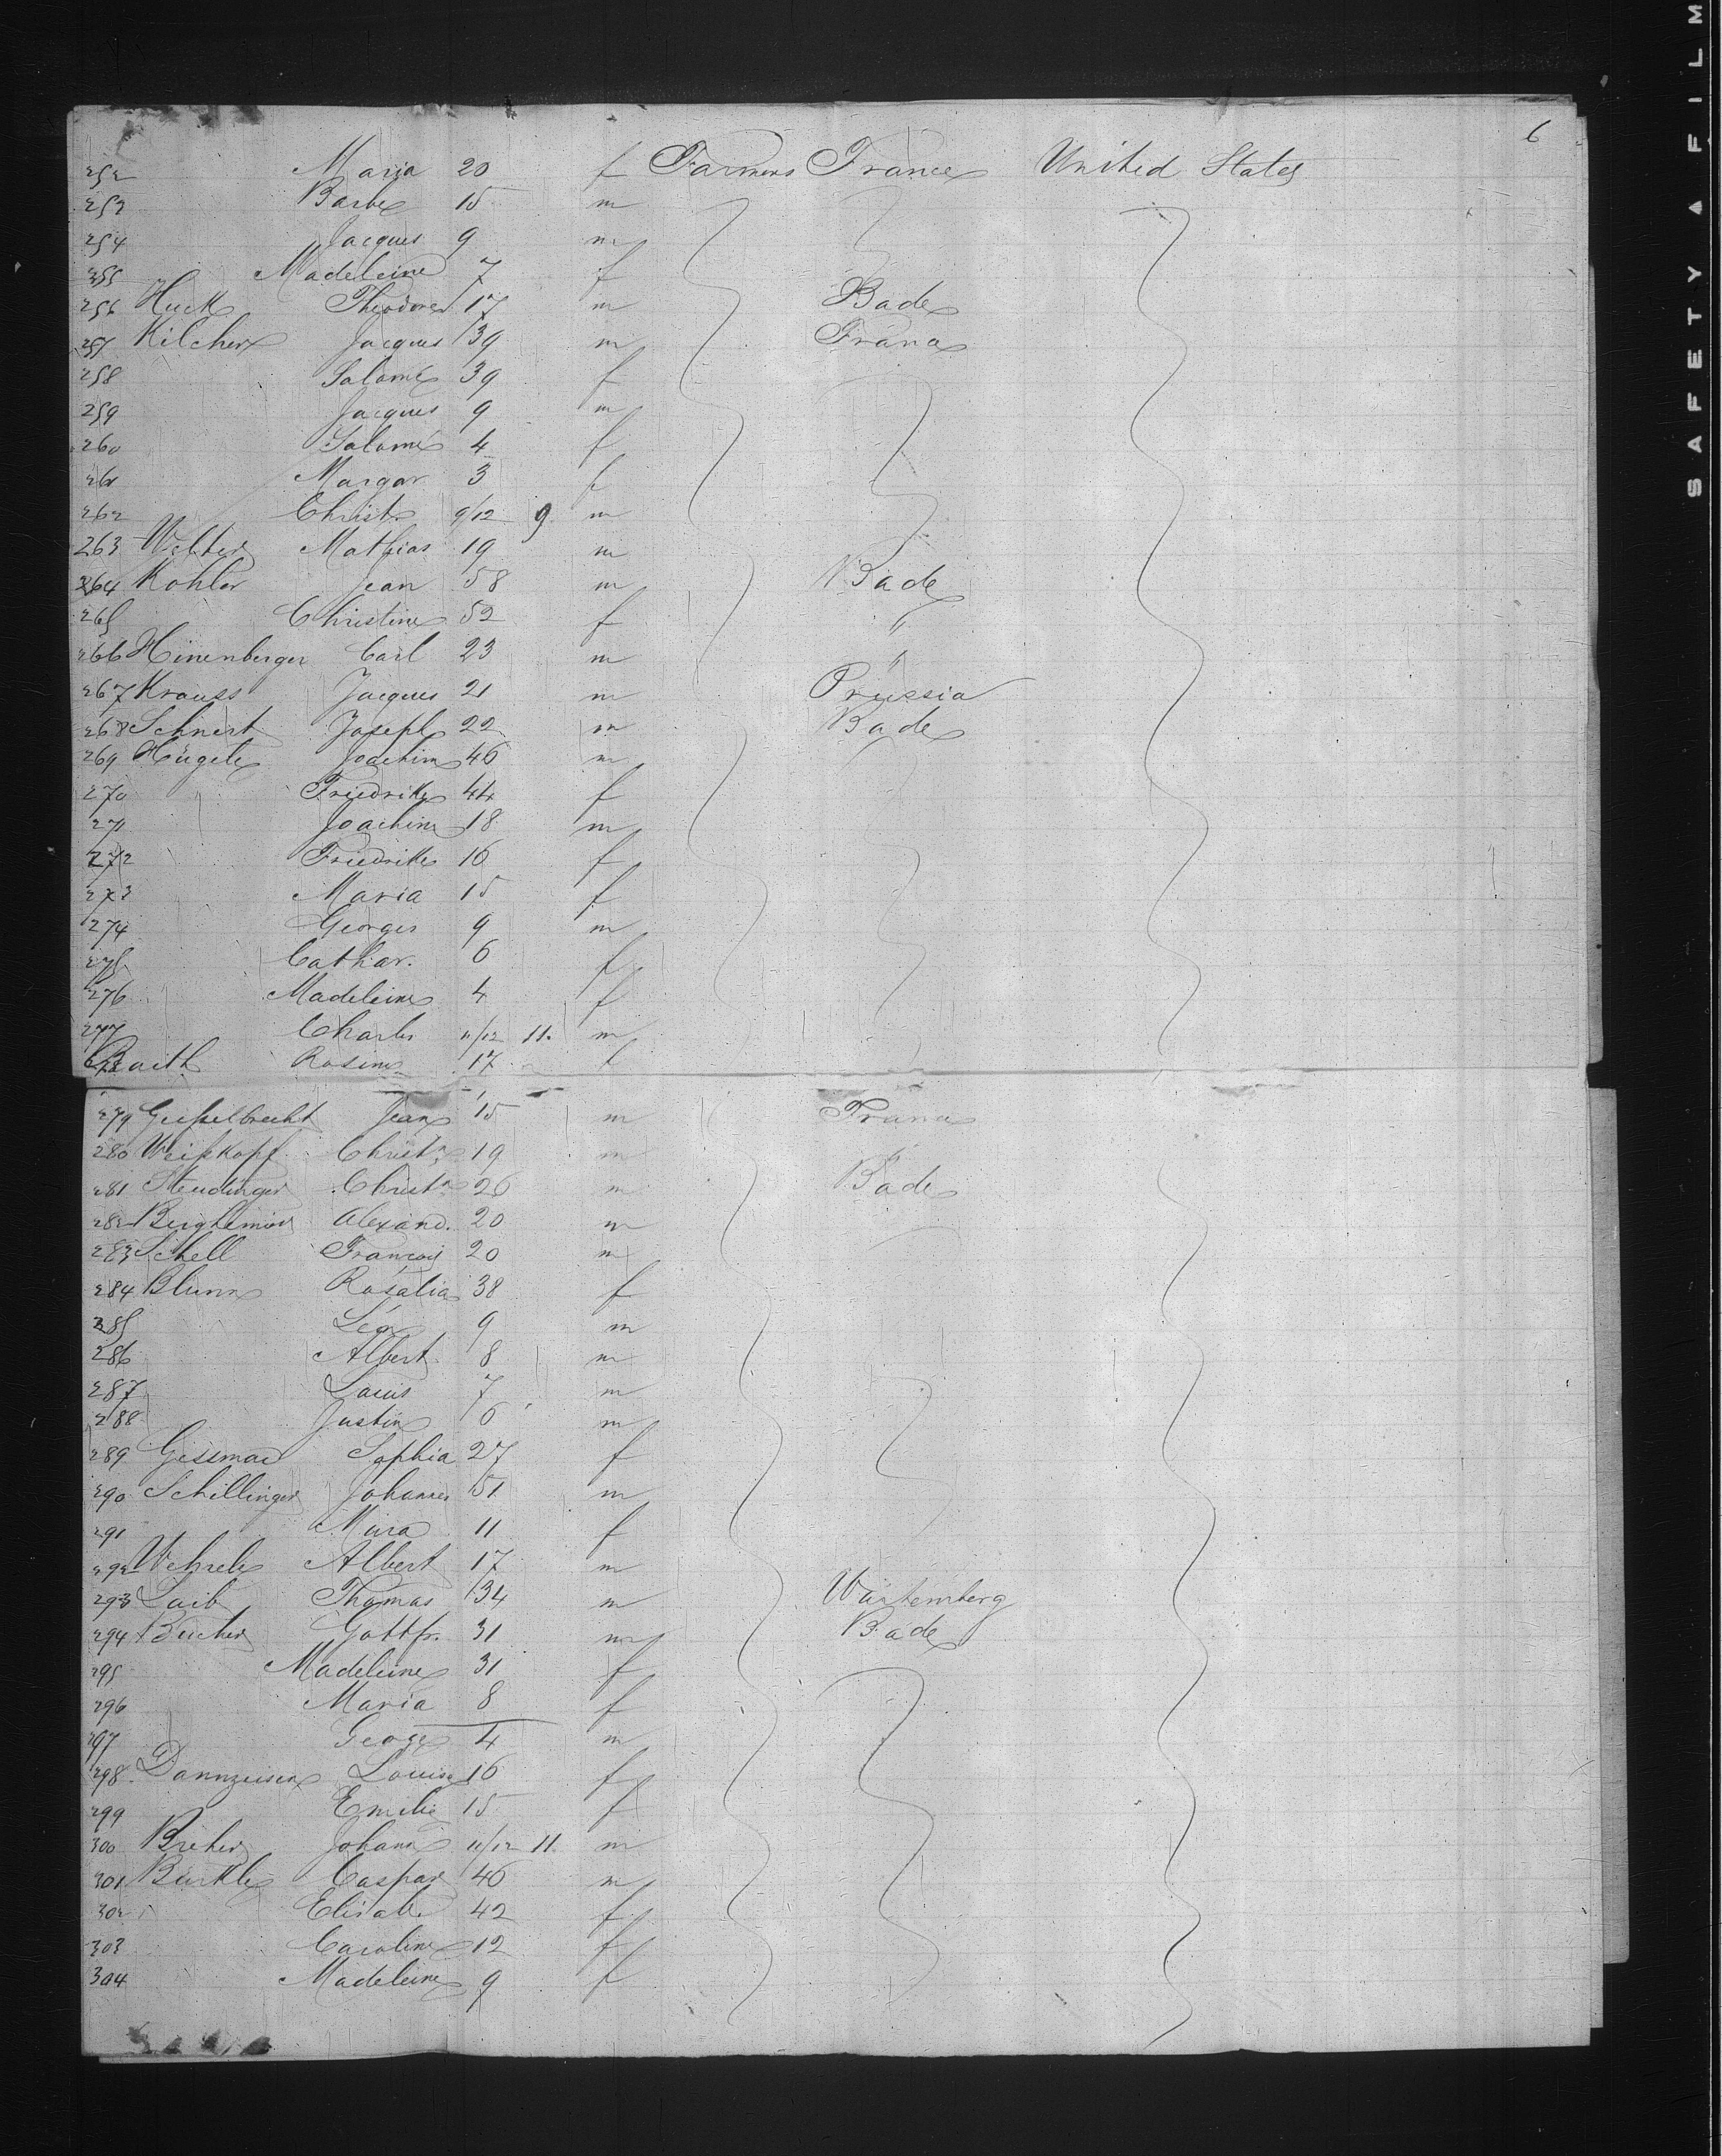 6
252 Maria 20 f Farmers France United States
253 Barbe 15 m
254 Jacques 9 m
255 Madeleine 7 f
256 Huck Theodore 17 m Bade
257 Kilcher Jacques 39 m France
258 Salomé 39 f
259 Jacques 9 m
260 Salomé 4 f
261 Margar 3 f
262 Christ. 9/12 9 m
263 Welter Mathias 19 m
264 Kohler Jean 58 m Bade
265 Christine 52 f "
266 Hinenberger Carl 23 m "
267 Krauss Jacques 21 m Prussia
268 Schnert Joseph 22 m Bade
269 Hügele Joachim 46 m
270 " Friedrike 44 f
271 Joachim 18 m
272 Friedrike 16 f
273 Maria 15 f
274 Georges 9 m
275 Cathar. 6 f
276 Madeleine 4 f
277 Charles 11/12 11. m
Barth Rosine 17 f
279 Geisselbrecht Jean 15 m France
280 Weißkopf Christ. 19 m "
281 Steudinger Christn 26 m Bade
282 Alexand. 20 m
283 Schell François 20 m
284 Blum Rosalia 38 f
285 Léon 9 m
286 Albert 8 m
287 Louis 7 m
288 Justin 6 m
289 Sophia 27 f
290 Schillinger Johannes 51 m
291 11 f
292 Wehrele Albert 17 m
293 Laib Thomas 34 m Würtemberg
294 Bucher Gottfr. 31 m Bade
295 Madeleine 31 f
296 Maria 8 f
297 George 4 m
298 Louise 16 f
299 Emilie 15 f
300 Johann 11/12 11. m
301 Burkle Caspar 46 m
302 Elisab. 42 f
303 Caroline 12 f
304 Madeleine 9 f
SAFETY ▲ FILM